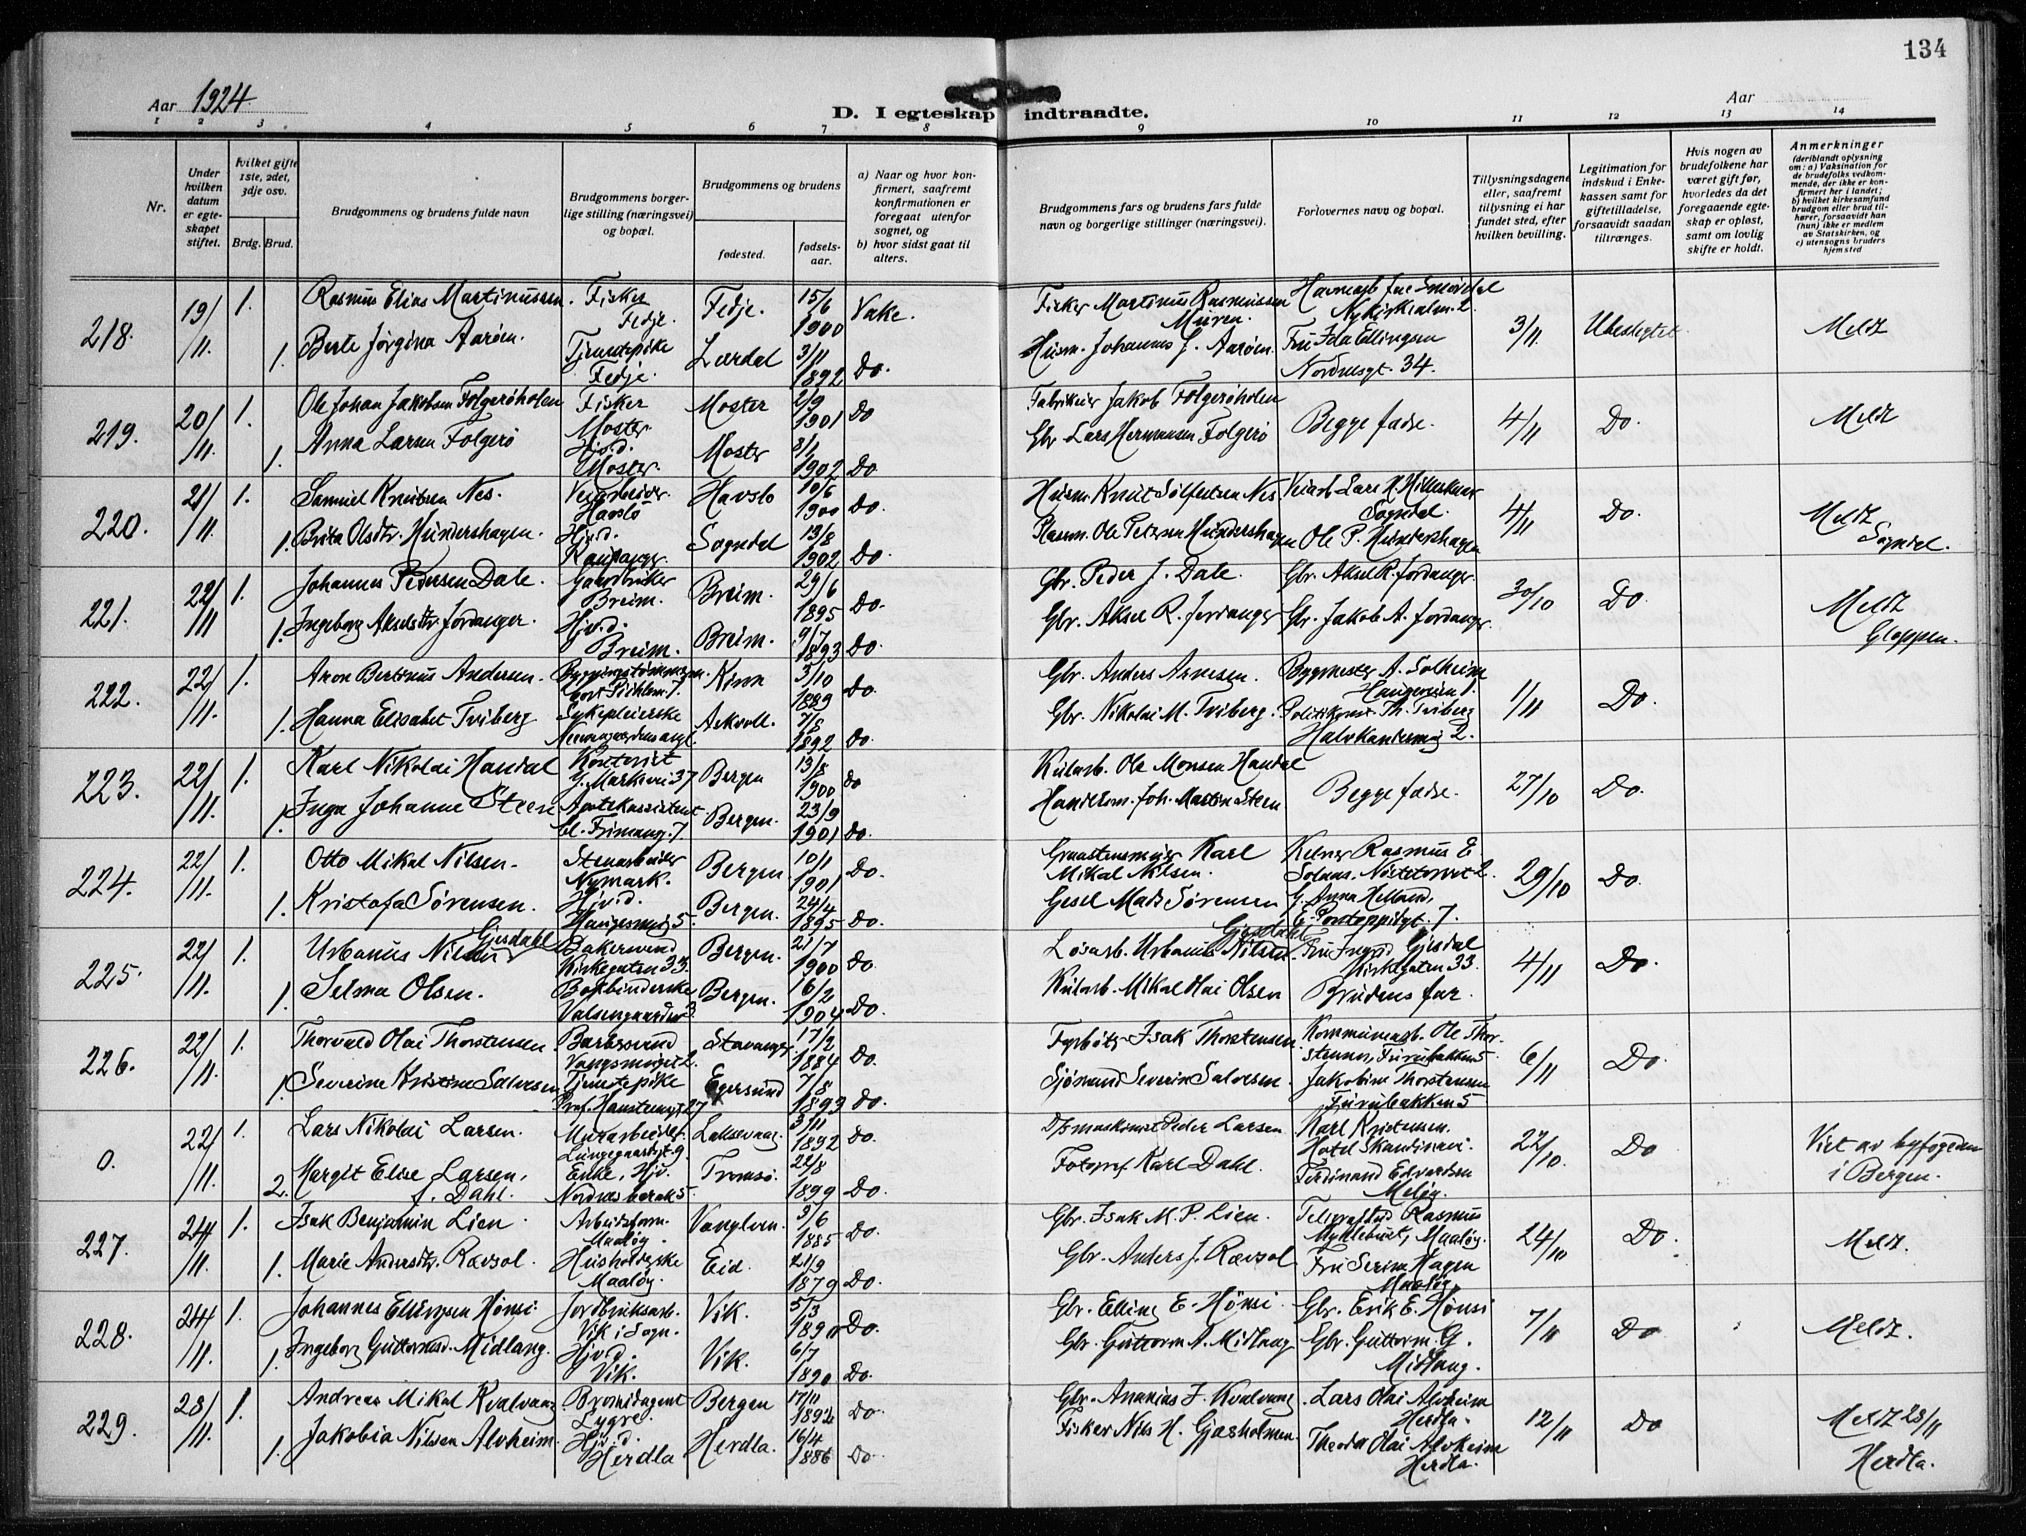 134
Aar 1924.
Aar
D. I egteskap indtraadte.
1 2 3 4 5 6 7 8 9 10 11 12 13 14
Nr.
Under hvilken datum er egteskapet stiftet.
hvilket gifte 1ste, 2det, 3dje osv.
Brdg. Brud.
Brudgommens og brudens fulde navn
Brudgommens borgerlige stilling (næringsvei) og bopæl.
Brudgommens og brudens
fødested.
fødselsaar.
a) Naar og hvor konfirmert, saafremt konfirmationen er foregaat utenfor sognet, og
b) hvor sidst gaat til alters.
Brudgommens fars og brudens fars fulde navn og borgerlige stillinger (næringsvei).
Forlovernes navn og bopæl.
Tillysningsdagene eller, saafremt tillysning ei har fundet sted, efter hvilken bevilling.
Legitimation for indskud i Enkekassen samt for giftetilladelse, forsaavidt saadan tiltrænges.
Hvis nogen av brudefolkene har været gift før, hvorledes da det foregaaende egteskap er opløst, samt om lovlig skifte er holdt.
Anmerkninger
(deriblandt oplysning om: a) Vaksination for de brudefolks vedkommende, der ikke er konfirmert her i landet;
b) hvilket kirkesamfund brudgom eller brud tilhører, forsaavidt han (hun) ikke er medlem av Statskirken, og
c) utensogns bruders hjemsted
218. 19/11. 1. Rasmus Elias Martinussen. Fisker Fedje. Fedje. 15/6 1900 Vake. Fisker Martinus Rasmussen Muren. Nykirkealm. 2 3/11 Ubeslegtet Meldt
1. Berte Jørgina Aarøen. Tjenestepike Fedje. Lærdal 3/11 1892 Do. Husm. Johannes J. Aarøen. Fru Ida Ellingsen Nordnesgt. 34.
219. 20/11. 1. Ole Johan Jakobsen Folgerøholen Fisker Moster Moster 2/9 1901 Do Fabrikeier Jakob Folgerøholen Begge fædre. 4/11 Do. Meldt
1. Anna Larsen Folgerø Hjvd. Moster. Moster 1902 Do Gbr Lars Hermansen Folgerø
220. 21/11. 1. Samuel Knutsen Nes. Veiarbeider. Havslo Havslo 10/6 1900 Do. Husm. Knut Sølfestsen Nes Veiarb. Lars Sogndal. 4/11 Do. Meldt Sogndal.
1. Brita Olsdtr. Hundershagen. Hjvd. Kaupanger Sogndal 13/8 1902 Do. Plassm. Ole Petersen Hundershagen Ole P. Hundershagen
221. 22/11 1. Johannes Pedersen Dale. Gaardbruker Breim. Breim. 29/6 1895 Do. Gbr. Peder J. Dale. Gbr. Aksel R. Jordanger. 30/10 Do. Meldt Gloppen.
1. Ingeborg Akselsdtr. Jordanger. Hjvd. Breim. Breim. 9/7 1893 Do. Gbr. Aksel R. Jordanger Gbr. Jakob A. Jordanger.
222. 22/11. 1. Aron Bertinus Andersen. Kinn 3/10 1889 Do. Gbr. Anders Arnesen. Bygmester A. Solheim Haugeveien 1. 1/11 Do
1. Hanna Elisabet Tviberg Sykepleierske Askvoll. 7/8 1892 Do. Gbr. Nikolai M. Tviberg. Politikonst. Th. Tviberg 2.
223. 22/11. 1. Karl Nikolai Handal Kontorist 37 Bergen 13/8 1900 Do Kularb. Ole Monsen Handal Begge fædre. 27/10 Do.
1. Inga Johanne Steen Apotekassistent 7. Bergen. 23/9 1901 Do. Handelsm. Joh. Martin Steen
224. 22/11. 1. Otto Mikal Nilsen. Stenarbeider Nymark. Bergen 10/1 1901 Do. Karl Mikal Nilsen. Kelner Rasmus E. Nøstetorvet 2. 29/10 Do.
1. Kristofa Sørensen. Hjvd. Haugesmug 5. Bergen. 24/4 1895 Do. Gesel Mads Sørensen Anna Helland, E. Pontoppidgt. 7.
225. 22/11. 1. Urbanus Nilsen Gjesdahl Bakersvend Kirkegaten 33. Bergen. 21/7 1900 Do. Løsarb. Urbanus Nilsen Gjesdahl Fru Ingrid Gjesdal Kirkegaten 33. 4/11 Do.
1. Selma Olsen. Bokbinderske Valsengaarden 3 Bergen. 16/2 1904 Do. Kularb. Mikal Olai Olsen Brudens far.
226. 22/11. 1. Thorvald Olai Thorstensen Barbersvend Vaagsmyret 2. Stavanger. 17/2 1884 Do. Fyrbøter Isak Thorstensen. Kommunearb. Ole Thorstensen, Furubakken 5. 6/11 Do.
1. Severine Kristine Salvesen Tjenestepike Prof. Hansteensgt. 27 Egersund 7/8 1893 Do. Sjømand Severin Salvesen. Jakobine Thorstensen Furubakken 5
0. 22/11. 1. Lars Nikolai Larsen. Murarbeider. 9. Laksevaag. 3/11 1892 Do. D/Smaskinist Peder Larsen Karl Kristensen. Hotel Skandinavi. 22/10. Do Viet av byfogden i Bergen.
2. Margit Elise Larsen, f. Dahl. Enke, Hjv. Nordnesberak 5. Tromsø. 22/8 1899 Do. Fotograf Karl Dahl. Ferdinand Edvardsen Meløy.
227. 24/11. 1. Isak Benjamin Lien. Arbeidsform. Maaløy. Vanylven. 3/6 1885 Do. Gbr. Isak M. P. Lien. Rasmus Myklebust, Maaløy. 24/10 Do. Meldt.
1. Marie Andersdtr. Rævsol. Husholderske Maaløy. Eid. 21/9 1879 Do. Gbr. Anders J. Rævsol Fru Serina Hagen Maaløy
228. 24/11. 1. Johannes Ellingsen Hønsi. Jordbruksarb. Vik i Sogn. Vik. 5/3 1890 Do. Gbr. Elling E. Hønsi. Gbr. Erik E. Hønsi 7/11 Do Meldt.
1. Ingeborg Guttormsd. Midlang. Hjvd. Vik. Vik. 6/7 1890 Do. Gbr. Guttorm A. Midlang Gbr. Guttorm G. Midlang.
229. 28/11. 1. Andreas Mikal Kvalvaag Lygre. Bergen 17/11 1892 Do. Gbr. Ananias J. Kvalvaag Lars Olai Alvheim Herdla. 12/11 Do Meldt 28/11 Herdla.
1. Jakobia Nilsen Alvheim. Hjvd. Herdla Herdla. 16/4 1886 Do. Fisker Nils H. Gjæsholmen. Theodor Olai Alvheim Herdla.